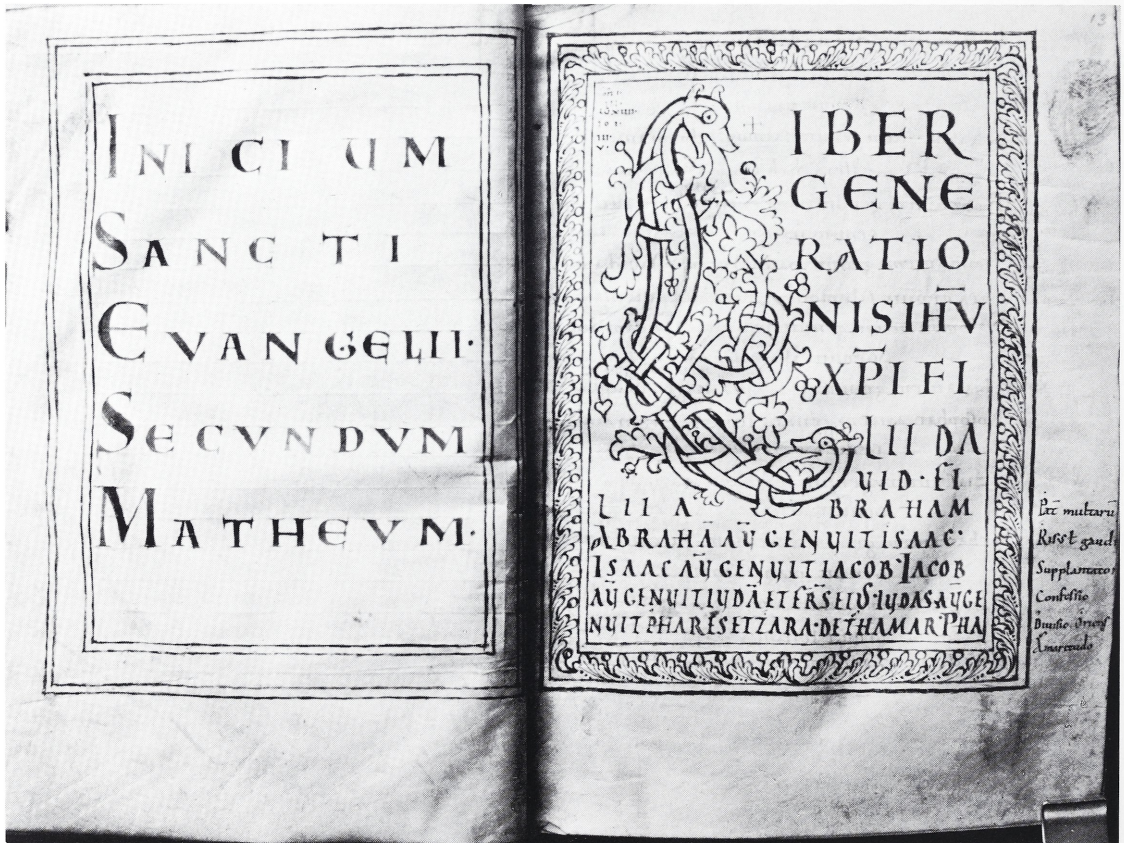 INICIUM
SANCTI
EVANGELII·
SECVNDVM
MATHEVM·
13
LIBER
GENE
RATIO
NISIHV̄
XP̄I FI
LII DA
UID· FI
LII A BRAHAM
ABRAHĀ AŪ GENUIT ISAAC·
ISAAC AŪ GENUIT IACOB· IACOB
AŪ GENUIT IUDĀ ET FR̄S EIUS· IUDAS AŪ GE
NUIT PHARES ET ZARA· DE THAMAR· PHA
Pat̄ multarū
Supplantator
Confessio